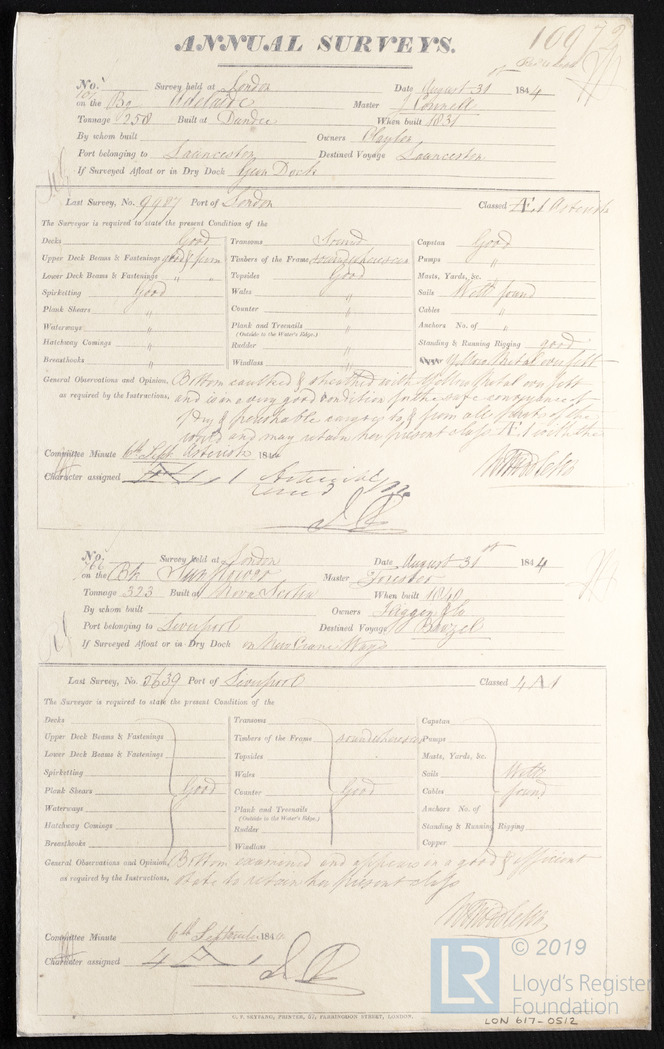 ANNUAL SURVEYS.
10972
No. 767 Survey held at London Date August 31st 1844
on the Bg Adelaide Master J Connell
Tonnage 258 Built at Dundee When built 1831
By whom built Owners Clayton
Port belonging to Launceston Destined Voyage Launceston
If Surveyed Afloat or in Dry Dock Gun Dock
Last Survey, No. 9987 Port of London Classed Æ 1 Asterisk
The Surveyor is required to state the present Condition of the
Decks Good Transoms Sound Capstan Good
Upper Deck Beams & Fastenings good & firm Timbers of the Frame Pumps "
Lower Deck Beams & Fastenings " " Topsides Good Masts, Yards, &c.
Spirketting Good Wales " Sails Well found
Plank Shears " Counter " Cables "
Waterways " Plank and Treenails " Anchors No. of "
(Outside to the Water's Edge.)
Hatchway Comings " Rudder " Standing & Running Rigging good
Breasthooks " Windlass " Yellow Metal over felt
General Observations and Opinion, Bottom caulked & sheathed with Yellow Metal over felt
as required by the Instructions, and is in a very good condition for the safe conveyance of
dry & perishable cargoes to & from all parts of the
world and may retain her present class Æ 1 with the
Committee Minute 6th Sept Asterisk 184
Character assigned 1 Asterisk
No. 766 Survey held at London Date August 31st 1844
on the Bk Sunflower Master Forester
Tonnage 323 Built at Nova Scotia When built 1840
By whom built Owners & Co
Port belonging to Liverpool Destined Voyage Brazil
If Surveyed Afloat or in Dry Dock on New Crane Ways
Last Survey, No. 5639 Port of Liverpool Classed 4 A 1
The Surveyor is required to state the present Condition of the
Decks Transoms Capstan
Upper Deck Beams & Fastenings Timbers of the Frame Pumps
Lower Deck Beams & Fastenings Topsides Masts, Yards, &c.
Spirketting Wales Sails Well
Plank Shears Good Counter Good Cables found
Waterways Plank and Treenails Anchors No. of
(Outside to the Water's Edge.)
Hatchway Comings Rudder Standing & Running Rigging
Breasthooks Windlass Copper
General Observations and Opinion, Bottom examined and appears in a good & efficient
as required by the Instructions, state to retain her present class
Committee Minute 6th September 184
Character assigned 4 A 1
© 2019
LR Lloyd's Register
Foundation
G. F. SEYFANG, PRINTER, 57, FARRINGDON STREET, LONDON.
LON 617-0512